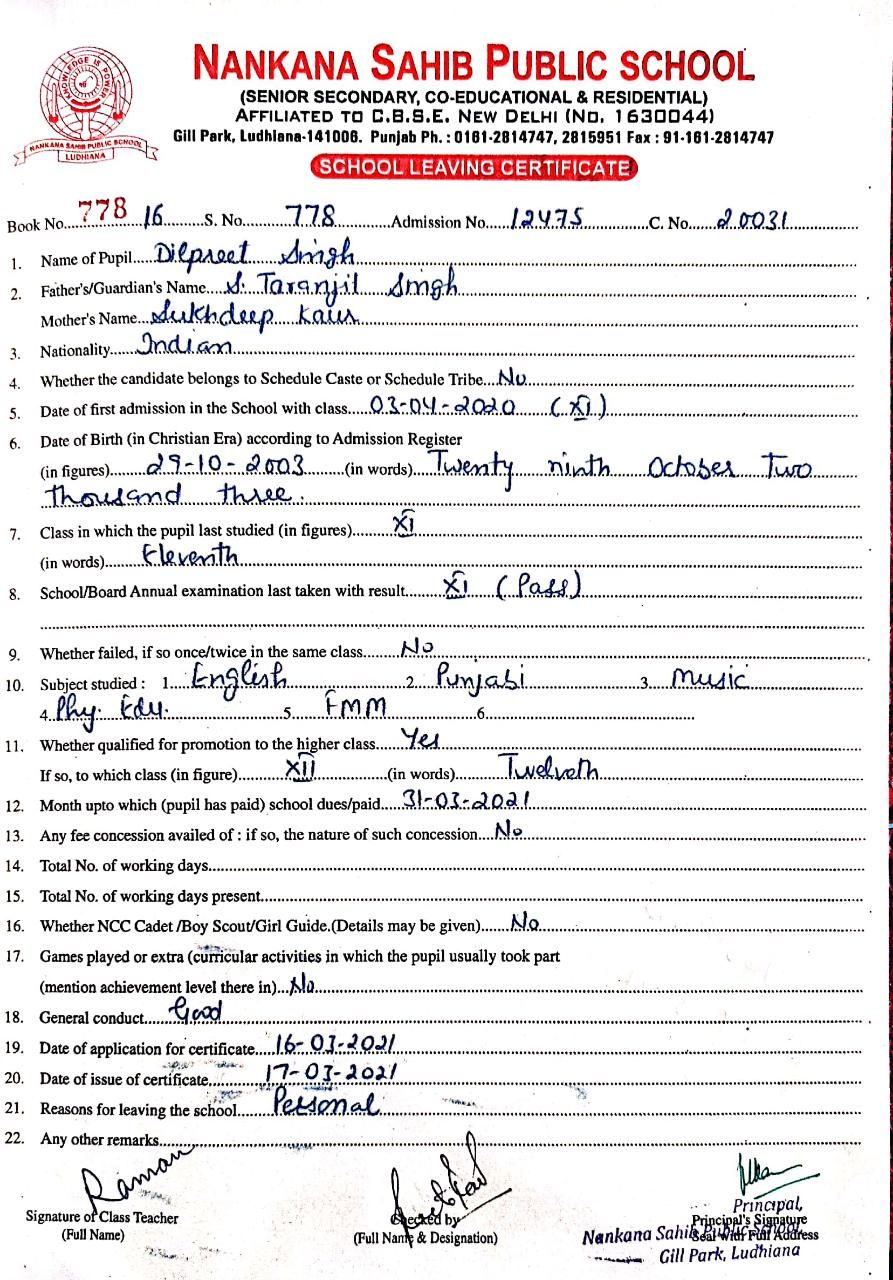 KNOWLEDGE IS POWER
NANKANA SAHIB PUBLIC SCHOOL
LUDHIANA
NANKANA SAHIB PUBLIC SCHOOL
(SENIOR SECONDARY, CO-EDUCATIONAL & RESIDENTIAL)
AFFILIATED TO C.B.S.E. NEW DELHI (NO. 1630044)
Gill Park, Ludhiana-141006. Punjab Ph.: 0161-2814747, 2815951 Fax : 91-161-2814747
SCHOOL LEAVING CERTIFICATE
Book No. 778 16 S. No. 778 Admission No. 12475 C. No. 20031
1. Name of Pupil Dilpreet Singh
2. Father's/Guardian's Name S. Taranjit Singh
Mother's Name Sukhdeep Kaur
3. Nationality Indian
4. Whether the candidate belongs to Schedule Caste or Schedule Tribe No
5. Date of first admission in the School with class 03-04-2020 (XI)
6. Date of Birth (in Christian Era) according to Admission Register
(in figures) 29-10-2003 (in words) Twenty ninth October Two
thousand three.
7. Class in which the pupil last studied (in figures) XI
(in words) Eleventh
8. School/Board Annual examination last taken with result XI (Pass)
9. Whether failed, if so once/twice in the same class No
10. Subject studied : 1. English 2. Punjabi 3. Music
4. Phy. Edu. 5. FMM 6.
11. Whether qualified for promotion to the higher class Yes
If so, to which class (in figure) XII (in words) Twelveth
12. Month upto which (pupil has paid) school dues/paid 31-03-2021
13. Any fee concession availed of : if so, the nature of such concession No
14. Total No. of working days
15. Total No. of working days present
16. Whether NCC Cadet /Boy Scout/Girl Guide.(Details may be given) No
17. Games played or extra (curricular activities in which the pupil usually took part
(mention achievement level there in) No
18. General conduct Good
19. Date of application for certificate 16-03-2021
20. Date of issue of certificate 17-03-2021
21. Reasons for leaving the school Personal
22. Any other remarks
Raman
Signature of Class Teacher
(Full Name)
Checked by
(Full Name & Designation)
Principal,
Principal's Signature
Nankana Sahib Public School,
Seal With Full Address
Gill Park, Ludhiana